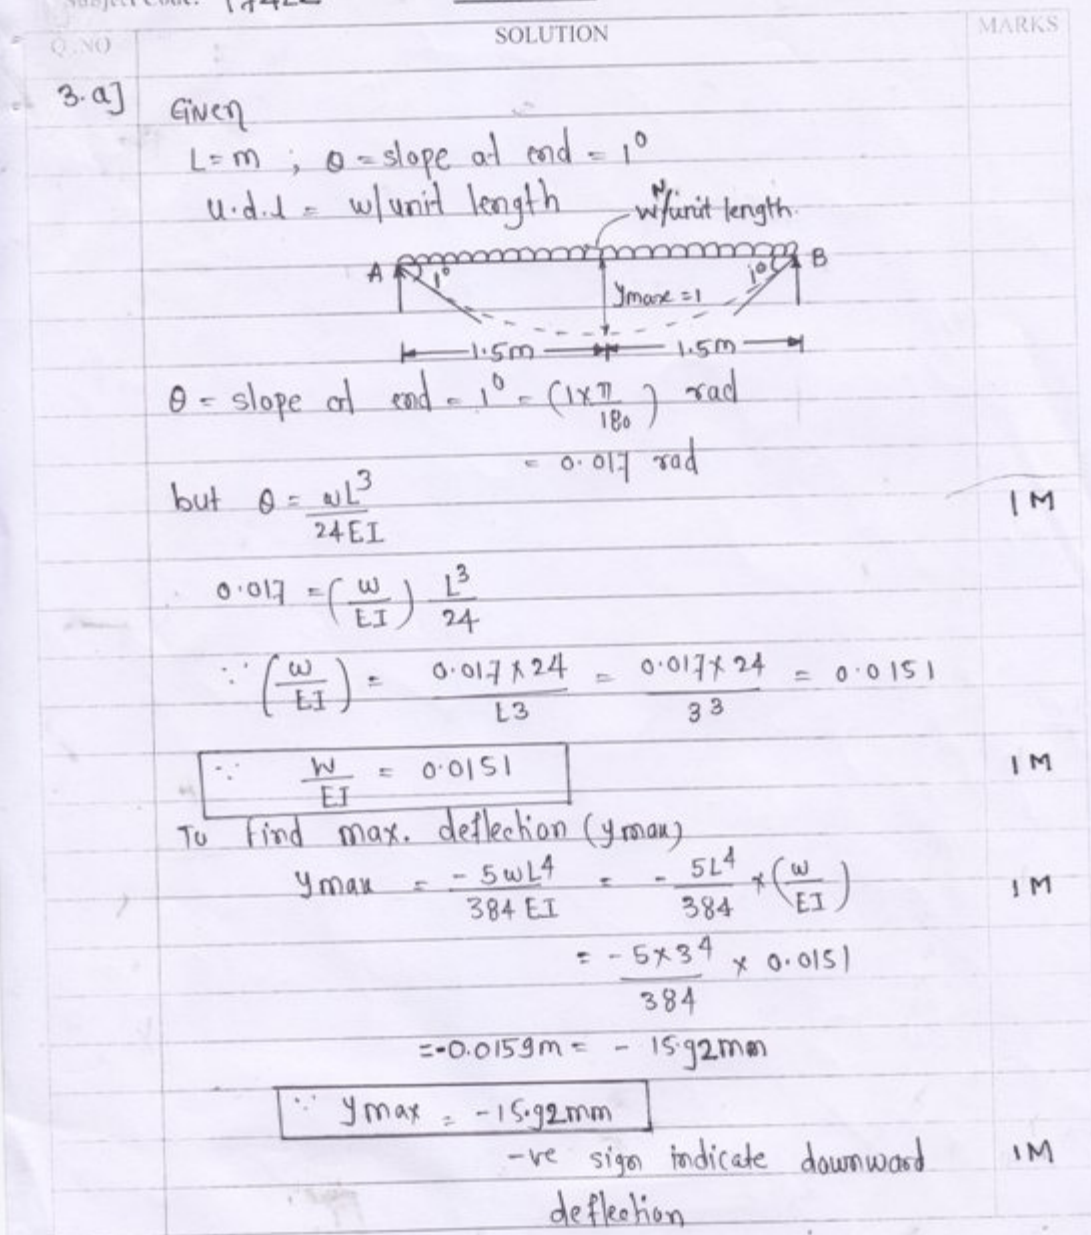 Subject Code: 17422
Q.NO SOLUTION MARKS
3.a] Given
L = m ; θ = slope at end = 1°
u.d.l = w/unit length
w N/unit length.
A 1° 1° B
ymax = 1
1.5m 1.5m
θ = slope at end = 1° = (1×π/180) rad
= 0.017 rad
but θ = wL³/24EI 1M
0.017 = (w/EI) L³/24
∵ (w/EI) = 0.017×24/L3 = 0.017×24/33 = 0.0151
∵ W/EI = 0.0151 1M
To find max. deflection (ymax)
ymax = -5wL⁴/384EI = -5L⁴/384 × (w/EI) 1M
= -5×3⁴/384 × 0.0151
=-0.0159m = - 15.92mm
∵ ymax = -15.92mm
-ve sign indicate downward 1M
deflection